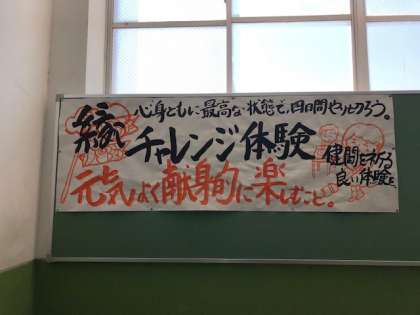 心身ともに最高な状態で、四日間やりきろう。
縁
チャレンジ体験
元気よく献身的に楽しむこと。
健闘を祈る
良い体験を